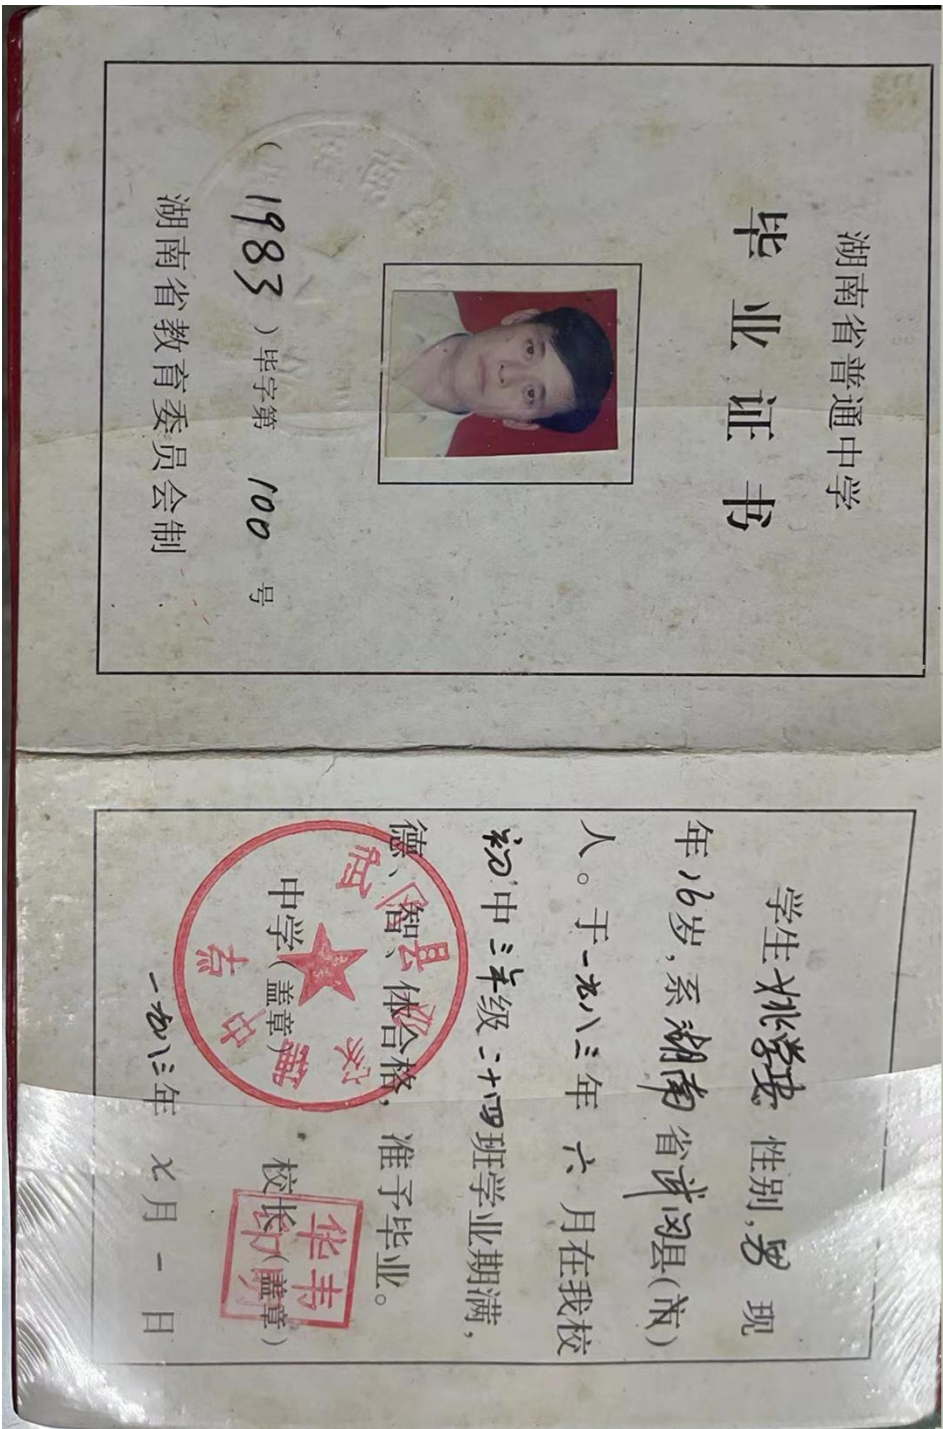 湖南省普通中学
毕业证书
(1983)毕字第 100 号
湖南省教育委员会制
学生姚学忠 性别,男 现
年16岁,系湖南省武冈县(市)
人。于一九八三年 六 月在我校
初中三年级二十四班学业期满,
德、智、体合格,准予毕业。
中学(盖章) 校长(盖章)
一九八三年 七月 一 日
武冈县
中
华韦
印